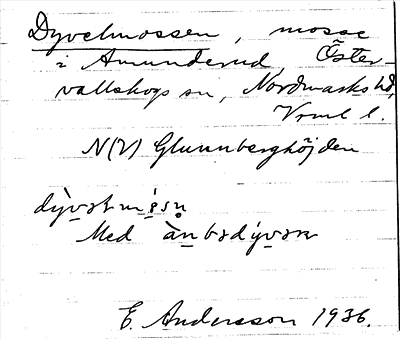 Dyvelmossen, mosse
i Amunderud, Öster-
vallskogs sn, Nordmarks hd,
Vrml l.
N(V) Glunnberghöjden
Med
E. Andersson 1936.